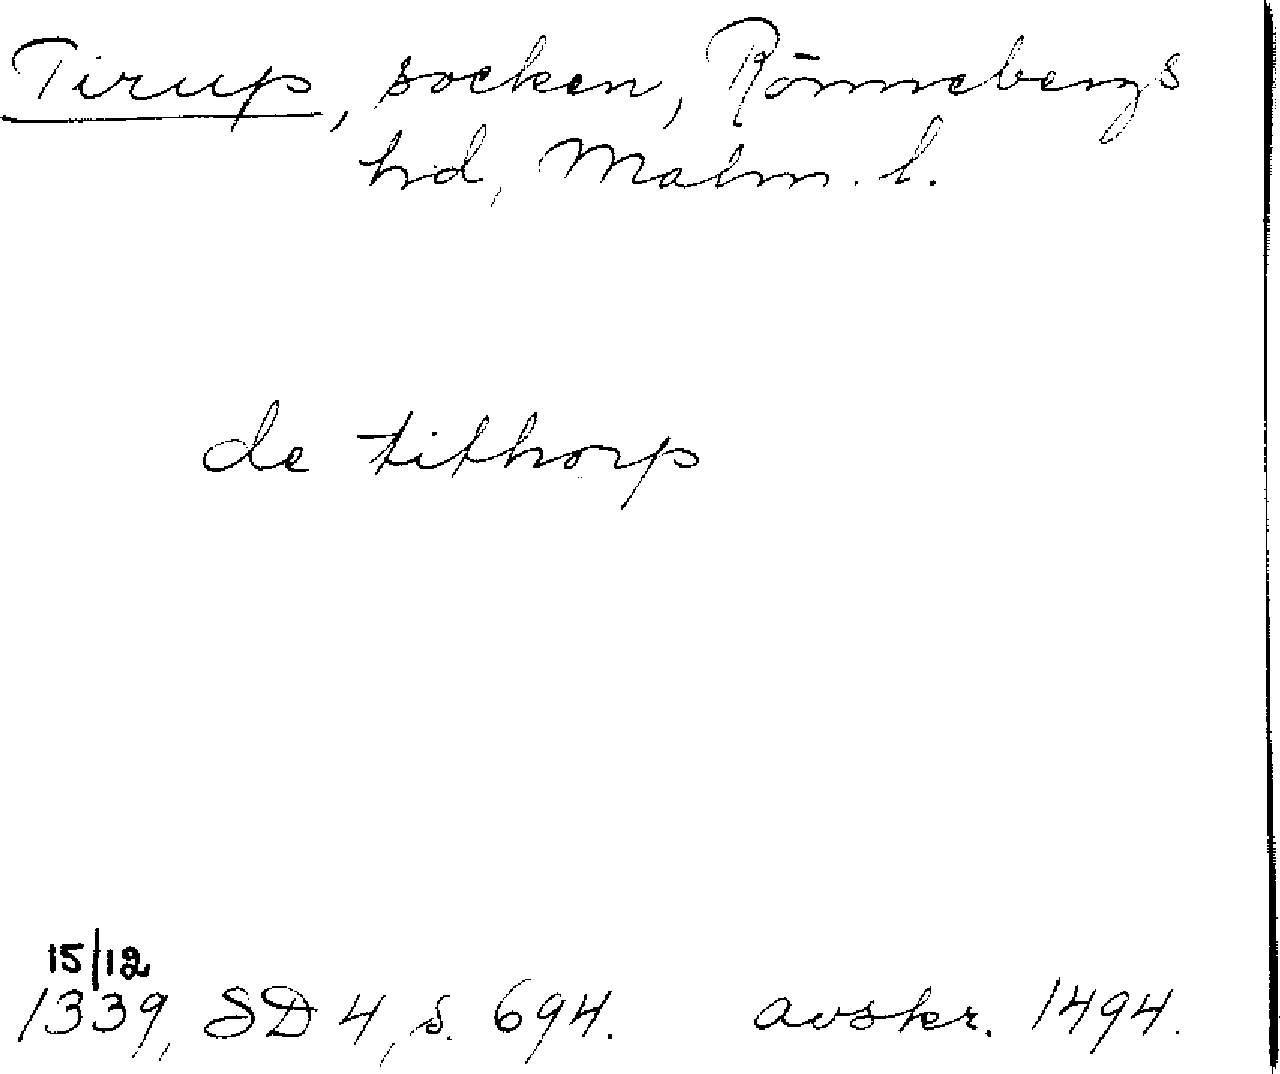 Tirup, socken, Rönnebergs
hd, Malm. l.
de tithorp
15/12
1339, SD 4, s. 694. avskr. 1494.